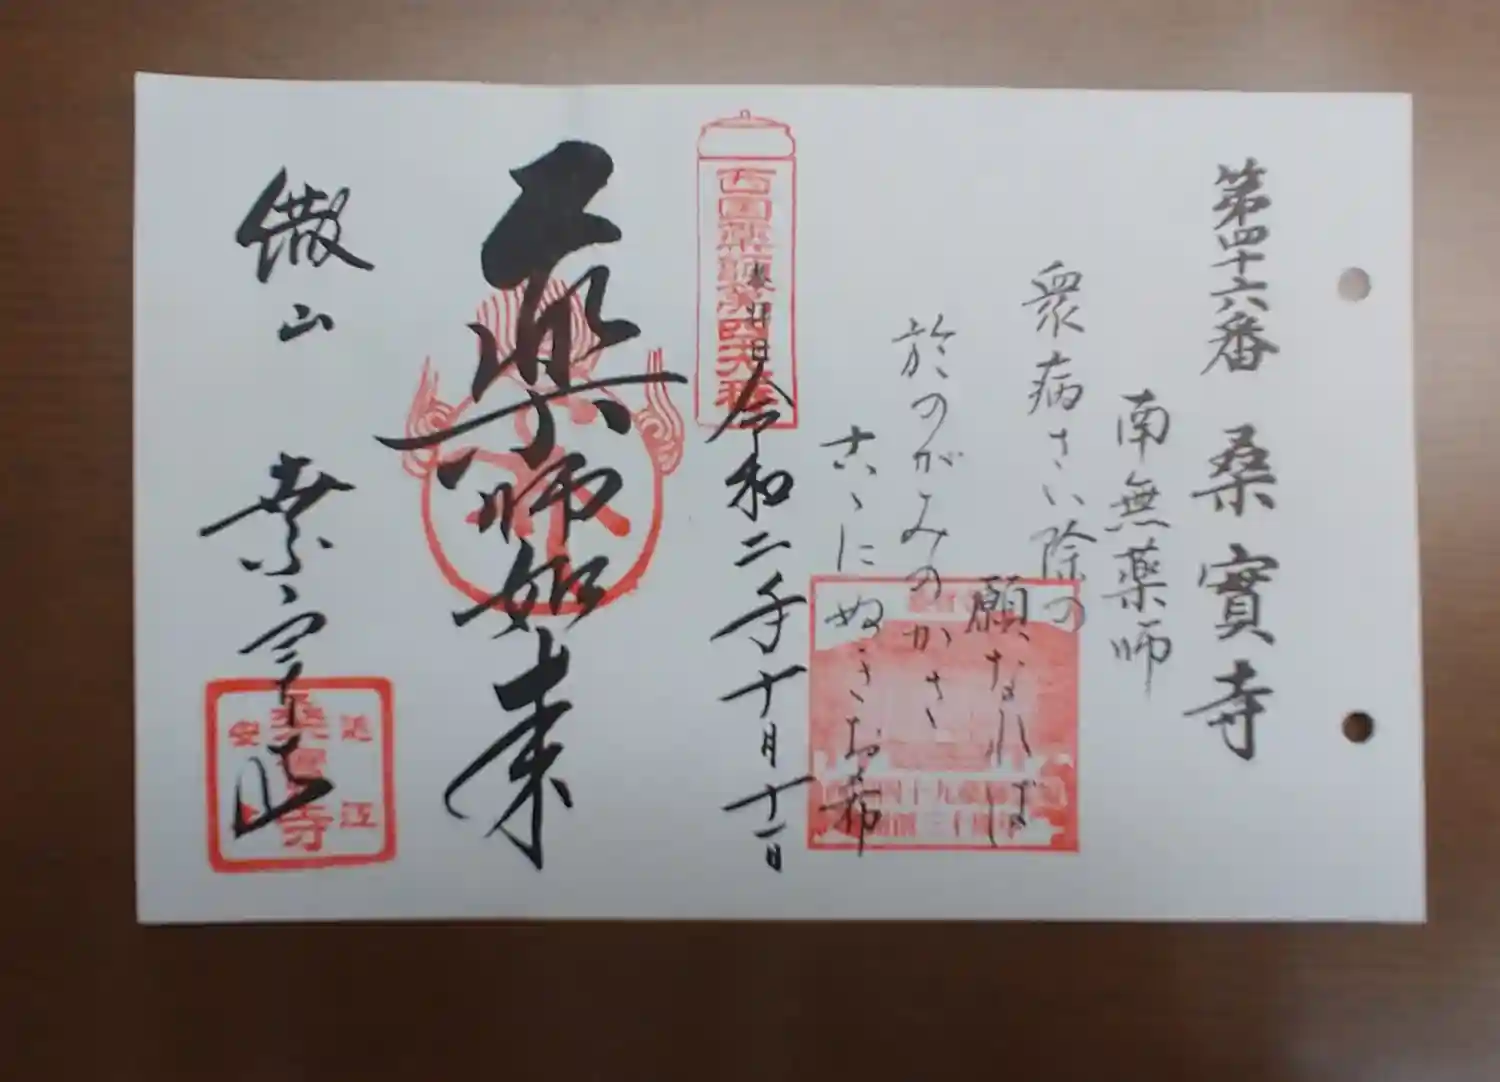 第四十六番 桑實寺
南無薬師
衆病さい除の
願なれば
於のがみのかさ
古ゝにぬきお布
西国薬師第四十六番
奉拝
令和二年十月十一日
薬師如来
繖山
桑實寺
近江
桑實寺
安土
四十九薬師霊場
開創三十周年